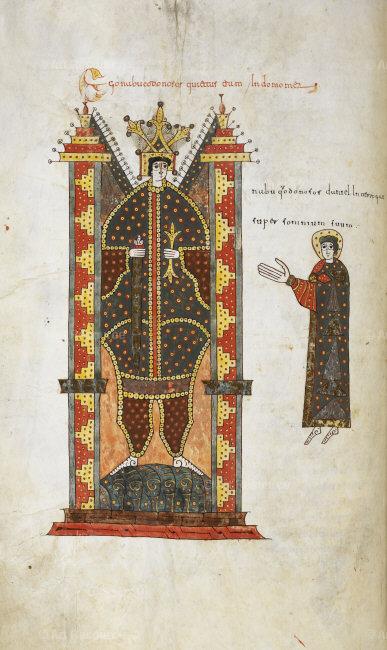 Ego nabucodonosor quietus eram In domo mea
nabuqodonosor daniel Interroga
super somnium suum